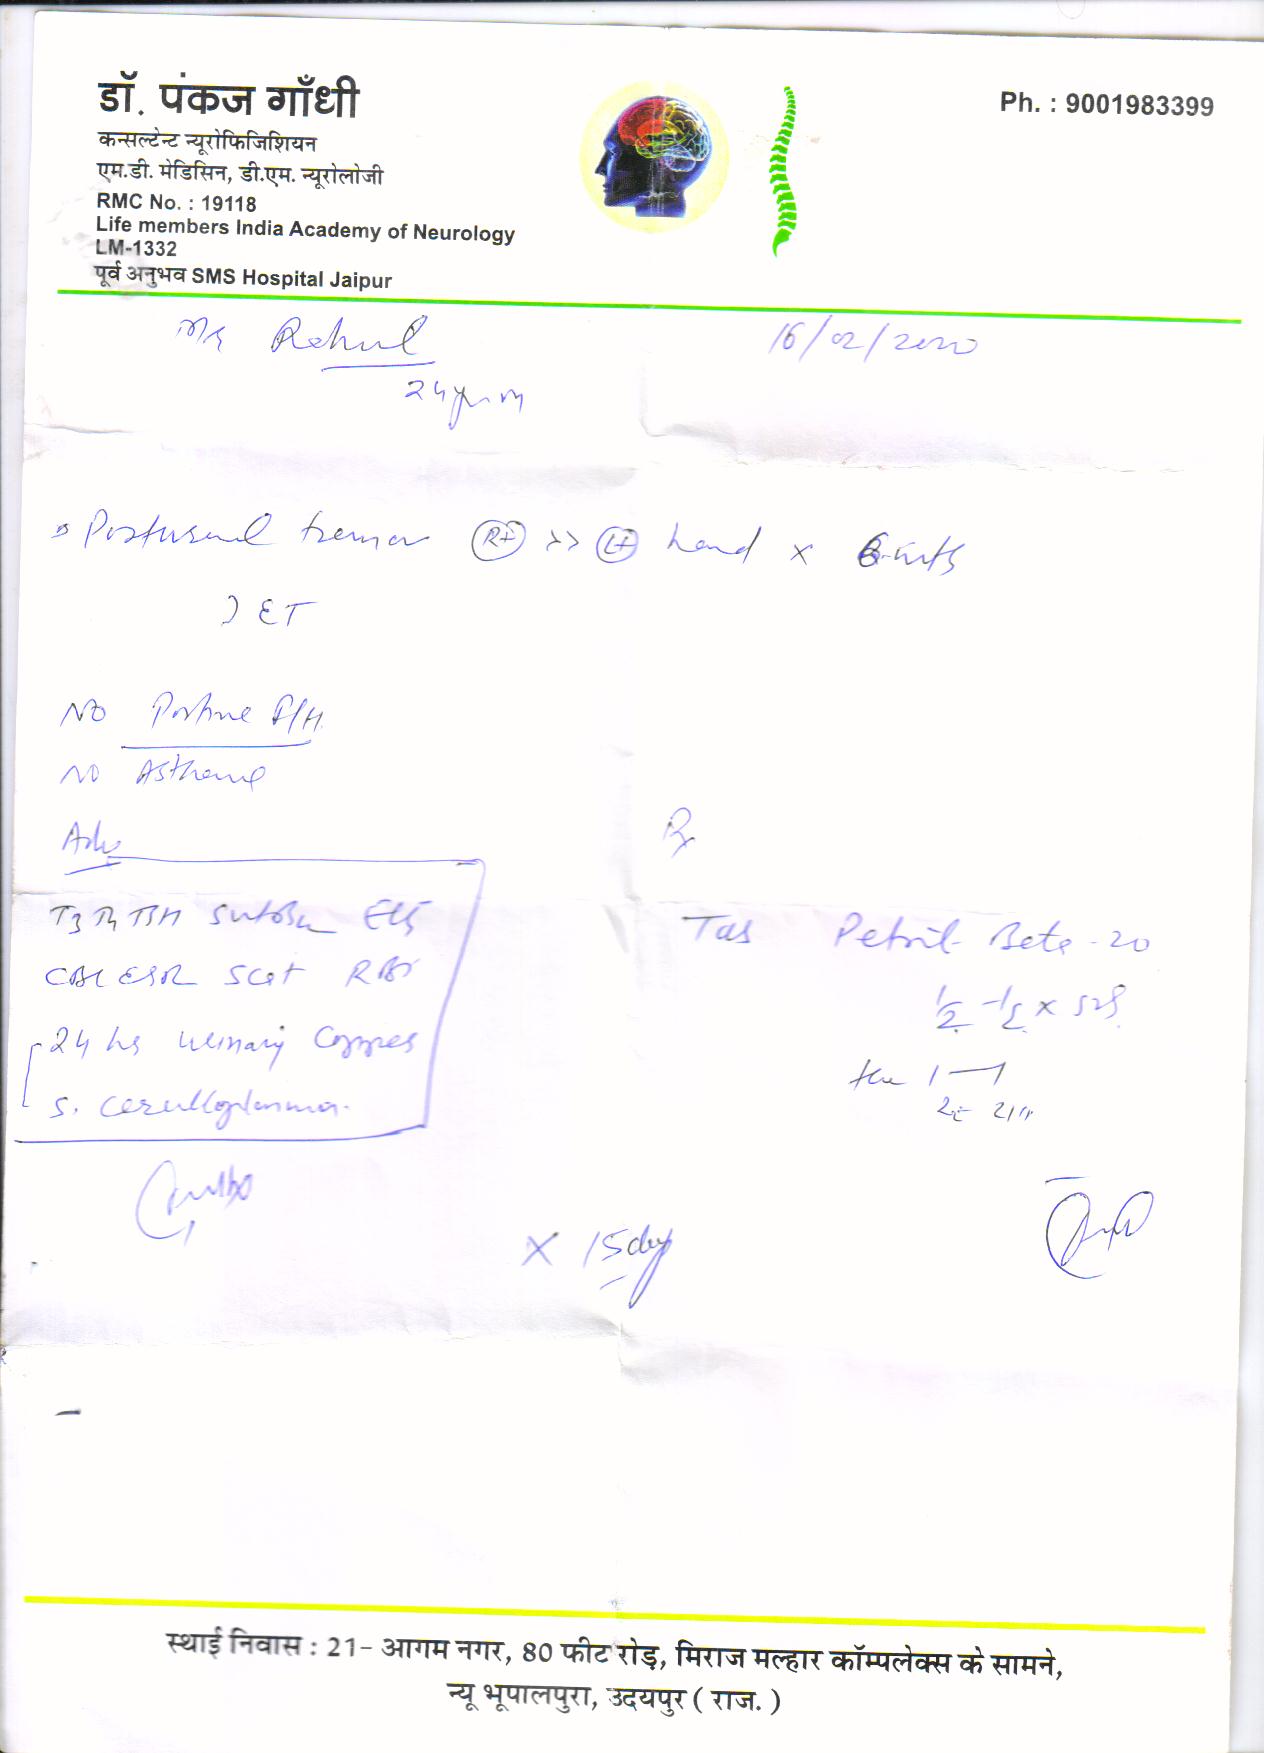 डॉ. पंकज गाँधी
कन्सल्टेन्ट न्यूरोफिजिशियन
एम.डी. मेडिसिन, डी.एम. न्यूरोलोजी
RMC No. : 19118
Life members India Academy of Neurology
LM-1332
पूर्व अनुभव SMS Hospital Jaipur
Ph. : 9001983399
Mr Rahul
16/02/2020
24 yrs m
Postural tremor Rt >> Lt hand x
ET
No Positive F/H
No Asthma
Adv
T3 T4 TSH
CBC ESR SGOT RBS
24 hrs urinary Copper
S. ceruloplasmin
Rx
Tab Petril Beta - 20
½ - ½ x
1 — 1
x 15 day
स्थाई निवास : 21- आगम नगर, 80 फीट रोड़, मिराज मल्हार कॉम्पलेक्स के सामने,
न्यू भूपालपुरा, उदयपुर ( राज. )